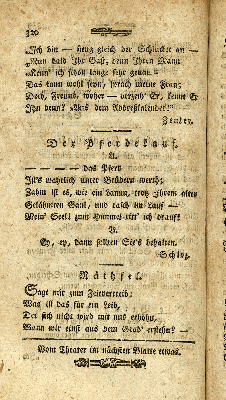 320
„Ich bin — fieng gleich der Schlucker an —
„Nun bald Ihr Gast, denn Ihren Mann
„Kenn' ich schon lange sehr genau."
Das kann wohl seyn, sprach meine Frau;
Doch, Freund, woher — verzeih' Er, kennt Er
Ihn denn? „Aus dem Adreßkalender."
Der Pferdekauf.
A.
— — — das Pferd
Ist's wahrlich unter Brüdern werth;
Zahm ist es, wie ein Lamm, trotz Ihrem alten
Gelähmten Gaul, und rasch im Lauf —
Mein' Seel! zum Himmel ritt' ich drauf!
B.
Ey, ey, dann sollten Sie's behalten.
Schütz.
Räthsel.
Sagt mir zum Zeitvertreib:
Was ist das für ein Leib,
Der sich nicht wird mit uns erhöhn,
Wann wir einst aus dem Grab' erstehn? —
Vom Theater im nächsten Blatte etwas.